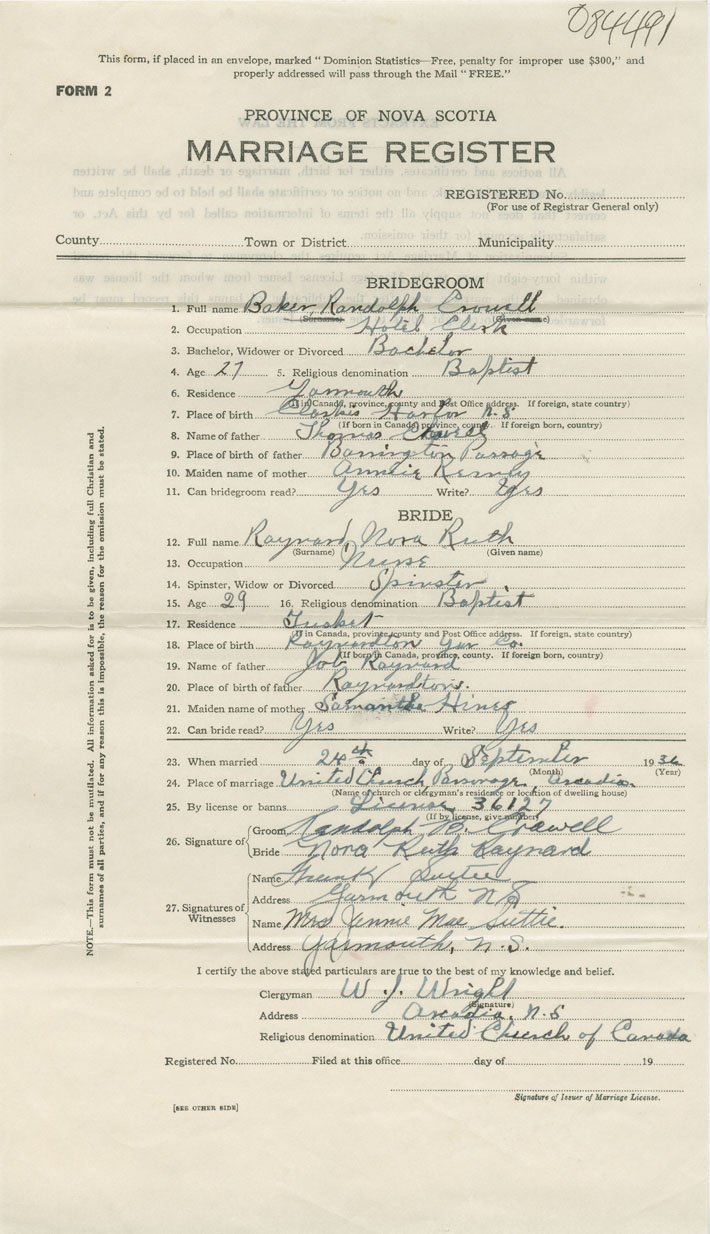 084491
This form, if placed in an envelope, marked "Dominion Statistics—Free, penalty for improper use $300," and
properly addressed will pass through the Mail "FREE."
FORM 2
PROVINCE OF NOVA SCOTIA
MARRIAGE REGISTER
REGISTERED No.
(For use of Registrar General only)
County Town or District Municipality
BRIDEGROOM
1. Full name Baker, Randolph Crowell
(Surname) (Given name)
2. Occupation Hotel Clerk
3. Bachelor, Widower or Divorced Bachelor
4. Age 27 5. Religious denomination Baptist
6. Residence Yarmouth
(If in Canada, province, county and Post Office address. If foreign, state country)
7. Place of birth Clarkes Harbor N.S.
(If born in Canada, province, county. If foreign born, country)
8. Name of father Thomas Crowell
9. Place of birth of father Barrington Passage
10. Maiden name of mother Kenney
11. Can bridegroom read? Yes Write? Yes
BRIDE
12. Full name Raynard, Nora Ruth
(Surname) (Given name)
13. Occupation Nurse
14. Spinster, Widow or Divorced Spinster
15. Age 29 16. Religious denomination Baptist
17. Residence Tusket
(If in Canada, province, county and Post Office address. If foreign, state country)
18. Place of birth Raynardton Yar Co.
(If born in Canada, province, county. If foreign born, country)
19. Name of father Job Raynard
20. Place of birth of father Raynardton.
21. Maiden name of mother Samantha Hines
22. Can bride read? Yes Write? Yes
23. When married 24th day of September 1936
(Month) (Year)
24. Place of marriage United Church Parsonage, Arcadia
(Name of church or clergyman's residence or location of dwelling house)
25. By license or banns License 36127
(If by license, give number)
26. Signature of Groom Randolph B. Crowell
Bride Nora Ruth Raynard
27. Signatures of Witnesses Name Frank Suttie
Address Yarmouth N.S.
Name Mrs Jennie Mae Suttie.
Address Yarmouth, N.S.
I certify the above stated particulars are true to the best of my knowledge and belief.
Clergyman W. J. Wright
(Signature)
Address Arcadia, N.S
Religious denomination United Church of Canada
Registered No. Filed at this office day of 19
Signature of Issuer of Marriage License.
[SEE OTHER SIDE]
NOTE.—This form must not be mutilated. All information asked for is to be given, including full Christian and
surnames of all parties, and if for any reason this is impossible, the reason for the omission must be stated.